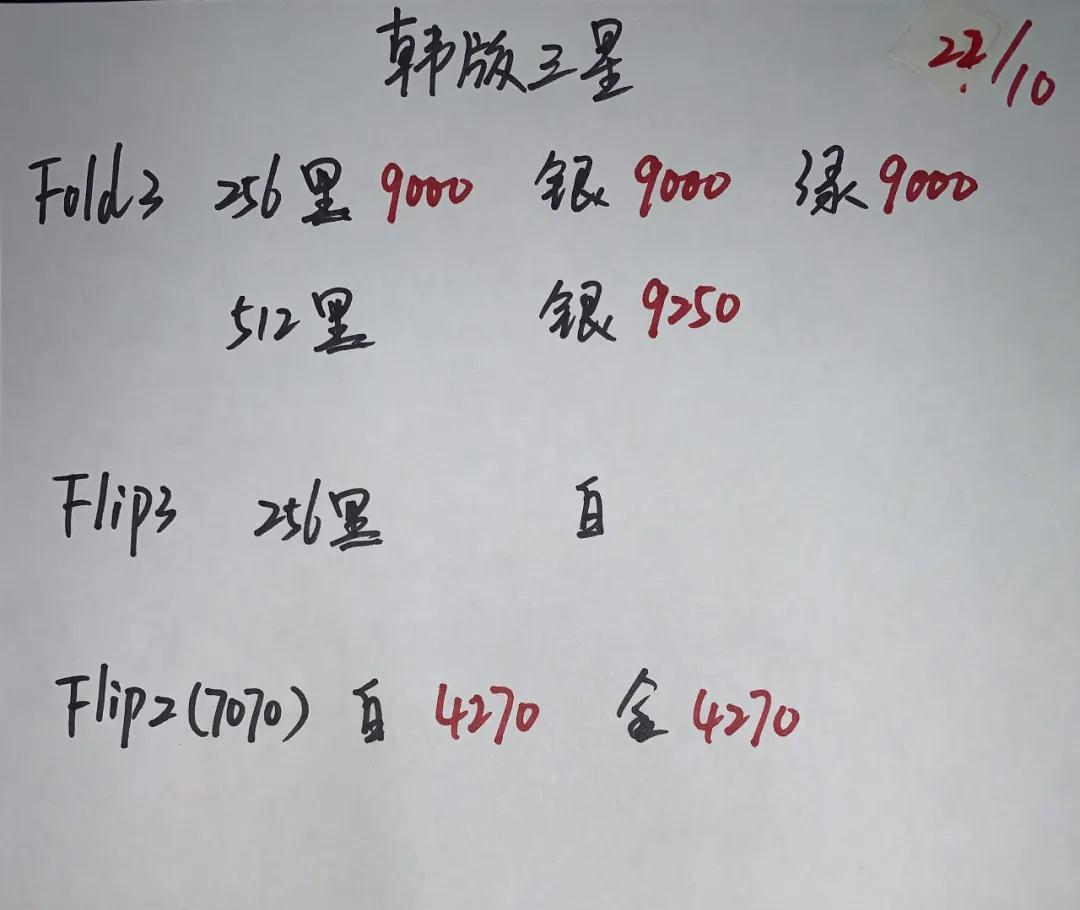 韩版三星 22/10
Fold3 256黑 9000 银 9000 绿 9000
512黑 银 9250
Flip3 256黑 白
Flip2(7070) 白 4270 金 4270